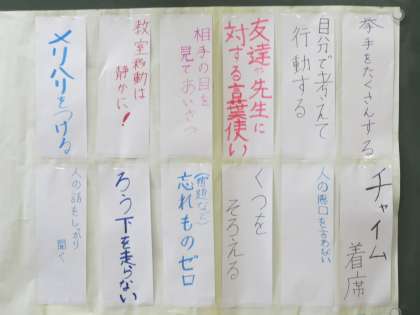 挙手をたくさんする
自分で考えて
行動する
友達や先生に
対する言葉使い
相手の目を
見てあいさつ
教室移動は
静かに!
メリハリをつける
チャイム
着席
人の悪口を言わない
くつを
そろえる
(宿題など)
忘れものゼロ
ろう下を走らない
人の話をしっかり
聞く